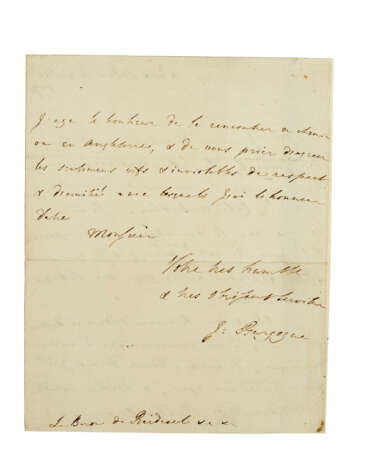 J'aye le bonheur de le rencontrer a
ou en Angleterre, & de vous prier d'agreer
les sentimens vifs & inviolables de respect
& d'amitié avec lesquels j'ai l'honneur
d'etre
Monsieur
Votre tres humble
& tres obeissant Serviteur
J: Burgoyne
Le Baron de Riedesel &c &c